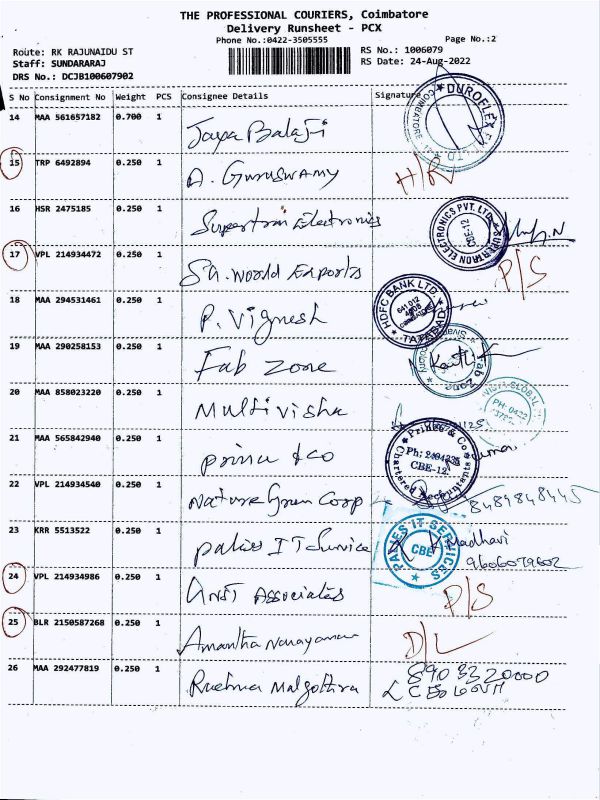 THE PROFESSIONAL COURIERS, Coimbatore
Delivery Runsheet - PCX
Phone No.:0422-3505555
Page No.:2
Route: RK RAJUNAIDU ST
RS No.: 1006079
Staff: SUNDARARAJ
RS Date: 24-Aug-2022
DRS No.: DCJB100607902
S No Consignment No Weight PCS Consignee Details Signature
14 MAA 561657182 0.700 1 Jaya Balaji
DUROFLEX COIMBATORE
15 TRP 6492894 0.250 1 A. Guruswamy
16 HSR 2475185 0.250 1 Supertron Electronics
SUPERTRON ELECTRONICS PVT. LTD. CBE-12
17 VPL 214934472 0.250 1 Sri. World Exports P/S
18 MAA 294531461 0.250 1 P. Vignesh
HDFC BANK LTD. TATABAD 641 012
19 MAA 290258153 0.250 1 Fab Zone
Fab Zone
20 MAA 858023220 0.250 1 Multivisha
GLOBAL PH: 0422
21 MAA 565842940 0.250 1 Prince & Co
Prince & Co Chartered Accountants Ph: CBE-12.
22 VPL 214934540 0.250 1 Nature Green Corp 8484848445
23 KRR 5513522 0.250 1 IT Service K Madhavi
IT SERVICES CBE
9606079602
24 VPL 214934986 0.250 1 Associates P/S
25 BLR 2150587268 0.250 1 Anantha Narayanan D/L
26 MAA 292477819 0.250 1 8903320000